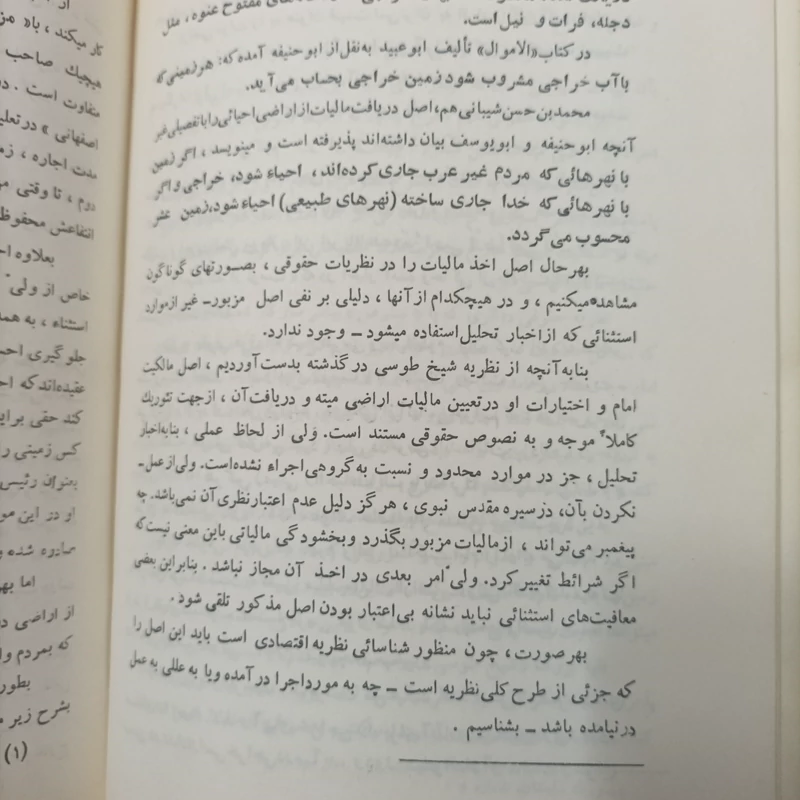 مفتوح عنوه، مثل
دجله، فرات و نیل است.
در کتاب «الاموال» تألیف ابوعبید به‌نقل از ابوحنیفه آمده که: هر زمینی که
باآب خراجی مشروب شود زمین خراجی بحساب می‌آید.
محمدبن‌حسن‌شیبانی هم، اصل دریافت مالیات از اراضی احیائی را با تفصیلی غیر
آنچه ابوحنیفه و ابویوسف بیان داشته‌اند پذیرفته است و مینویسد، اگر زمین
با نهرهائی که مردم غیر عرب جاری کرده‌اند، احیاء شود، خراجی و اگر
با نهرهائی که خدا جاری ساخته (نهرهای طبیعی) احیاء شود، زمین عشر
محسوب می‌گردد.
بهرحال اصل اخذ مالیات را در نظریات حقوقی، بصورتهای گوناگون
مشاهده میکنیم، و در هیچکدام از آنها، دلیلی بر نفی اصل مزبور ـ غیر از موارد
استثنائی که از اخبار تحلیل استفاده میشود ـ وجود ندارد.
بنابه آنچه از نظریه شیخ طوسی در گذشته بدست آوردیم، اصل مالکیت
امام و اختیارات او در تعیین مالیات اراضی میته و دریافت آن، ازجهت تئوریك
کاملاً موجه و به نصوص حقوقی مستند است. ولی از لحاظ عملی، بنابه اخبار
تحلیل، جز در موارد محدود و نسبت به گروهی اجراء نشده است. ولی از عمل ـ
نکردن بآن، در سیره مقدس نبوی، هرگز دلیل عدم اعتبار نظری آن نمی‌باشد. چه
پیغمبر می‌تواند، از مالیات مزبور بگذرد و بخشودگی مالیاتی باین معنی نیست که
اگر شرائط تغییر کرد. ولی امر بعدی در اخذ آن مجاز نباشد. بنابراین بعضی
معافیت‌های استثنائی نباید نشانه بی‌اعتبار بودن اصل مذکور تلقی شود.
بهرصورت، چون منظور شناسائی نظریه اقتصادی است باید این اصل را
که جزئی از طرح کلی نظریه است ـ چه به مورد اجرا در آمده ویا به عللی به عمل
در نیامده باشد ـ بشناسیم.
کار میکند، با «مز
هیچیك صاحب
متفاوت است. د
اصفهانی» در تعلی
مدت اجاره، ز
دوم، تا وقتی م
انتفاعش محفوظ
بعلاوه اح
خاص از ولی
استثناء، به همه
جلوگیری احی
عقیده‌اند که اح
کند حقی برای
کس زمینی را
بعنوان رئیس
او در این مو
مصادره شده و
اما بهر
از اراضی د
که بمردم وا
بطور
بشرح زیر
(۱)